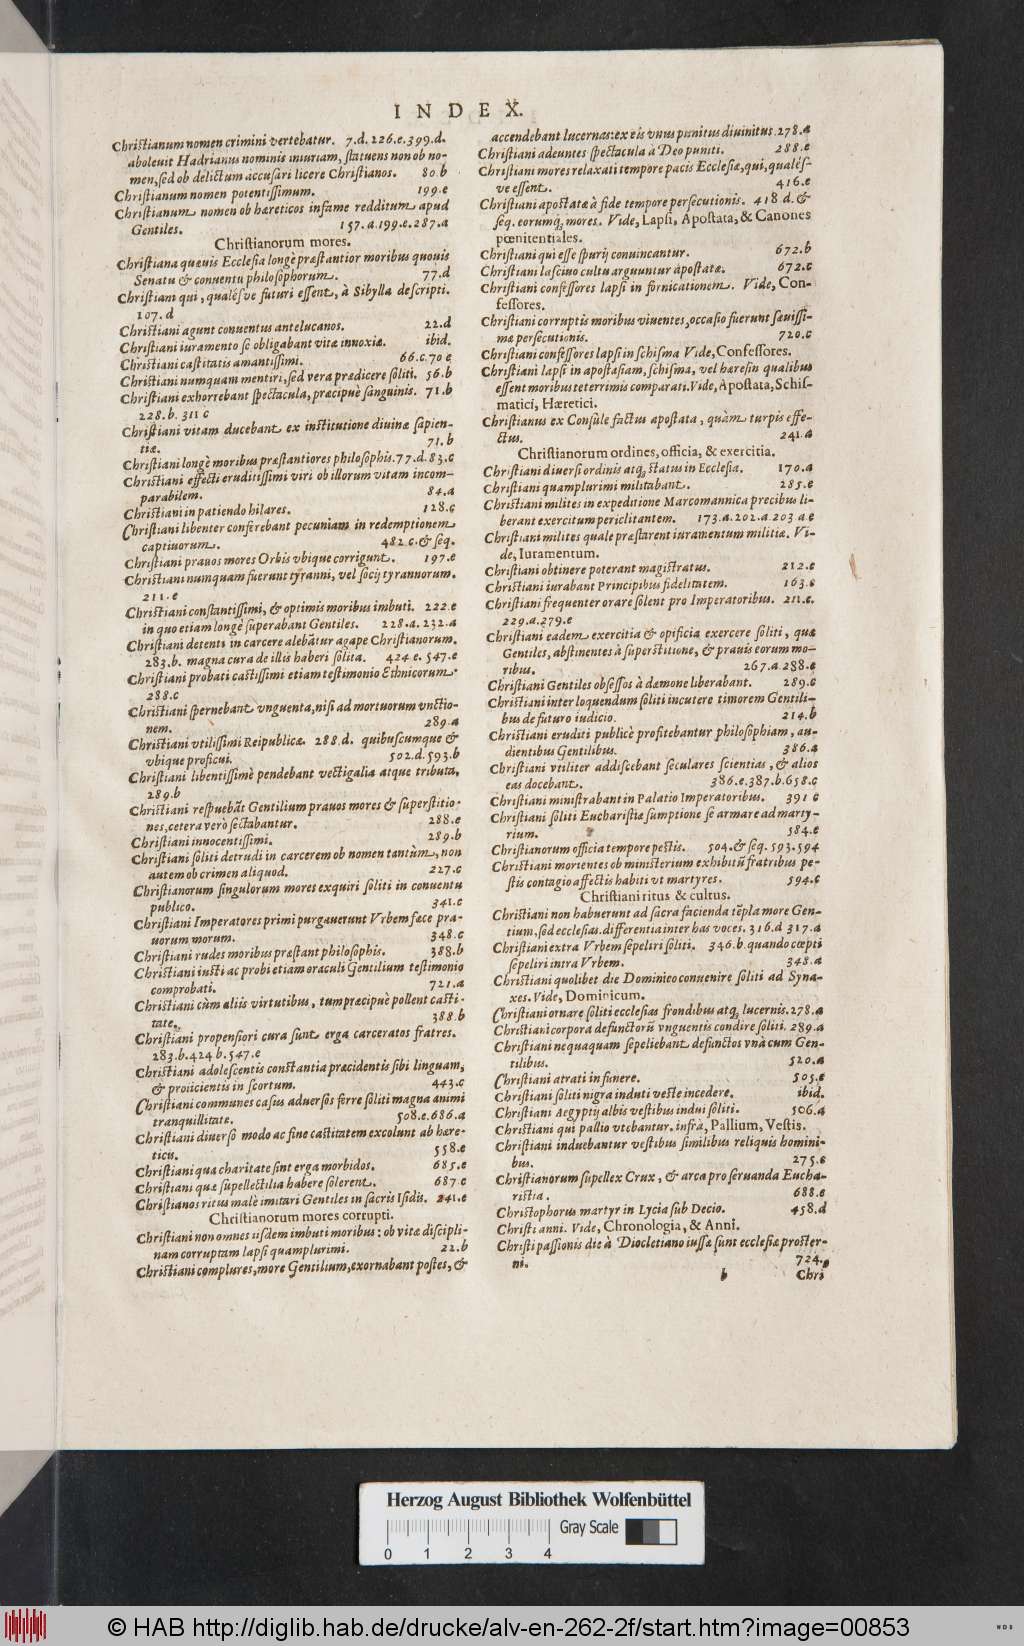 INDEX.
Christianum nomen crimini vertebatur. 7.d.226.e.399.d.
aboleuit Hadrianus nominis iniuriam, statuens non ob no-
men, sed ob delictum accusari licere Christianos. 80.b
Christianum nomen potentissimum. 199.e
Christianum nomen ob hæreticos infame redditum apud
Gentiles. 157.a.199.e.287.a
Christianorum mores.
Christiana quæuis Ecclesia longè præstantior moribus quouis
Senatu & conuentu philosophorum. 77.d
Christiani qui, qualésve futuri essent, à Sibylla descripti.
107.d
Christiani agunt conuentus antelucanos. 22.d
Christiani iuramento se obligabant vitæ innoxiæ. ibid.
Christiani castitatis amantissimi. 66.c.70 e
Christiani numquam mentiri, sed vera prædicere soliti. 56.b
Christiani exhorrebant spectacula, præcipuè sanguinis. 71.b
228.b. 311 c
Christiani vitam ducebant ex institutione diuinæ sapien-
tiæ. 71.b
Christiani longè moribus præstantiores philosophis. 77.d.83.c
Christiani effecti eruditissimi viri ob illorum vitam incom-
parabilem. 84.a
Christiani in patiendo hilares. 128.c
Christiani libenter conferebant pecuniam in redemptionem
captiuorum. 482 c.& seq.
Christiani prauos mores Orbis vbique corrigunt. 197.e
Christiani numquam fuerunt tyranni, vel socij tyrannorum.
211.e
Christiani constantissimi, & optimis moribus imbuti. 222.e
in quo etiam longè superabant Gentiles. 228.a.232.a
Christiani detenti in carcere alebãtur agape Christianorum.
283.b. magna cura de illis haberi solita. 424 e. 547.e
Christiani probati castissimi etiam testimonio Ethnicorum.
288.c
Christiani spernebant vnguenta, nisi ad mortuorum vnctio-
nem. 289.a
Christiani vtilissimi Reipublicæ. 288.d. quibuscumque &
vbique proficui. 502.d.593.b
Christiani libentissimè pendebant vectigalia atque tributa,
289.b
Christiani respuebãt Gentilium prauos mores & superstitio-
nes, cetera verò sectabantur. 288.e
Christiani innocentissimi. 289.b
Christiani soliti detrudi in carcerem ob nomen tantùm, non
autem ob crimen aliquod. 227.c
Christianorum singulorum mores exquiri soliti in conuentu
publico. 341.c
Christiani Imperatores primi purgauerunt Vrbem fæce pra-
uorum morum. 348.c
Christiani rudes moribus præstant philosophis. 388.b
Christiani iusti ac probi etiam oraculi Gentilium testimonio
comprobati. 721.a
Christiani cùm aliis virtutibus, tum præcipuè pollent casti-
tate. 388.b
Christiani propensiori cura sunt erga carceratos fratres.
283.b.424 b.547.e
Christiani adolescentis constantia præcidentis sibi linguam,
& proiicientis in scortum. 443.c
Christiani communes casus aduersos ferre soliti magna animi
tranquillitate. 508.e.686.a
Christiani diuerso modo ac fine castitatem excolunt ab hære-
ticis. 558.e
Christiani qua charitate sint erga morbidos. 685.e
Christiani quæ supellectilia habere solerent. 687.c
Christianos ritus malè imitari Gentiles in sacris Isidis. 241.e
Christianorum mores corrupti.
Christiani non omnes iisdem imbuti moribus: ob vitæ discipli-
nam corruptam lapsi quamplurimi. 22.b
Christiani complures, more Gentilium, exornabant postes, &
accendebant lucernas: ex eis vnus punitus diuinitus. 278.a
Christiani adeuntes spectacula à Deo puniti. 288.e
Christiani mores relaxati tempore pacis Ecclesiæ, qui, quales-
ve essent. 416.e
Christiani apostatæ à fide tempore persecutionis. 418 d. &
seq. eorumq́; mores. Vide, Lapsi, Apostata, & Canones
pœnitentiales.
Christiani qui esse spurij conuincantur. 672.b
Christiani lasciuo cultu arguuntur apostatæ. 672.c
Christiani confessores lapsi in fornicationem. Vide, Con-
fessores.
Christiani corruptis moribus viuentes, occasio fuerunt sæuissi-
mæ persecutionis. 720.c
Christiani confessores lapsi in schisma Vide, Confessores.
Christiani lapsi in apostasiam, schisma, vel hæresin qualibus
essent moribus teterrimis comparati. Vide, Apostata, Schis-
matici, Hæretici.
Christianus ex Consule factus apostata, quàm turpis effe-
ctus. 241.a
Christianorum ordines, officia, & exercitia.
Christiani diuersi ordinis atq; status in Ecclesia. 170.a
Christiani quamplurimi militabant. 285.e
Christiani milites in expeditione Marcomannica precibus li-
berant exercitum periclitantem. 173.a.202.a.203 a e
Christiani milites quale præstarent iuramentum militiæ. Vi-
de, Iuramentum.
Christiani obtinere poterant magistratus. 212.e
Christiani iurabant Principibus fidelitatem. 163.e
Christiani frequenter orare solent pro Imperatoribus. 211.e.
229.a.279.e
Christiani eadem exercitia & opificia exercere soliti, quæ
Gentiles, abstinentes à superstitione, & prauis eorum mo-
ribus. 267.a.288.e
Christiani Gentiles obsessos à dæmone liberabant. 289.c
Christiani inter loquendum soliti incutere timorem Gentili-
bus de futuro iudicio. 214.b
Christiani eruditi publicè profitebantur philosophiam, au-
dientibus Gentilibus. 386.a
Christiani vtiliter addiscebant seculares scientias, & alios
eas docebant. 386.e.387.b.658.c
Christiani ministrabant in Palatio Imperatoribus. 391 c
Christiani soliti Eucharistiæ sumptione se armare ad marty-
rium. 584.e
Christianorum officia tempore pestis. 504.& seq. 593.594
Christiani morientes ob ministerium exhibitũ fratribus pe-
stis contagio affectis habiti vt martyres. 594.c
Christiani ritus & cultus.
Christiani non habuerunt ad sacra facienda tẽpla more Gen-
tium, sed ecclesias. differentia inter has voces. 316.d 317.a
Christiani extra Vrbem sepeliri soliti. 346.b. quando cœpti
sepeliri intra Vrbem. 348.a
Christiani quolibet die Dominico conuenire soliti ad Syna-
xes. Vide, Dominicum.
Christiani ornare soliti ecclesias frondibus atq; lucernis. 278.a
Christiani corpora defunctorũ vnguentis condire soliti. 289.a
Christiani nequaquam sepeliebant defunctos vnà cum Gen-
tilibus. 520.a
Christiani atrati in funere. 505.e
Christiani soliti nigra induti veste incedere. ibid.
Christiani Aegyptij albis vestibus indui soliti. 506.a
Christiani qui pallio vtebantur. infrà, Pallium, Vestis.
Christiani induebantur vestibus similibus reliquis homini-
bus. 275.e
Christianorum supellex Crux, & arca pro seruanda Eucha-
ristia. 688.e
Christophorus martyr in Lycia sub Decio. 458.d
Christi anni. Vide, Chronologia, & Anni.
Christi passionis die à Diocletiano iussæ sunt ecclesiæ proster-
ni. 724.
b Chri
Herzog August Bibliothek Wolfenbüttel
Gray Scale
0 1 2 3 4
© HAB http://diglib.hab.de/drucke/alv-en-262-2f/start.htm?image=00853